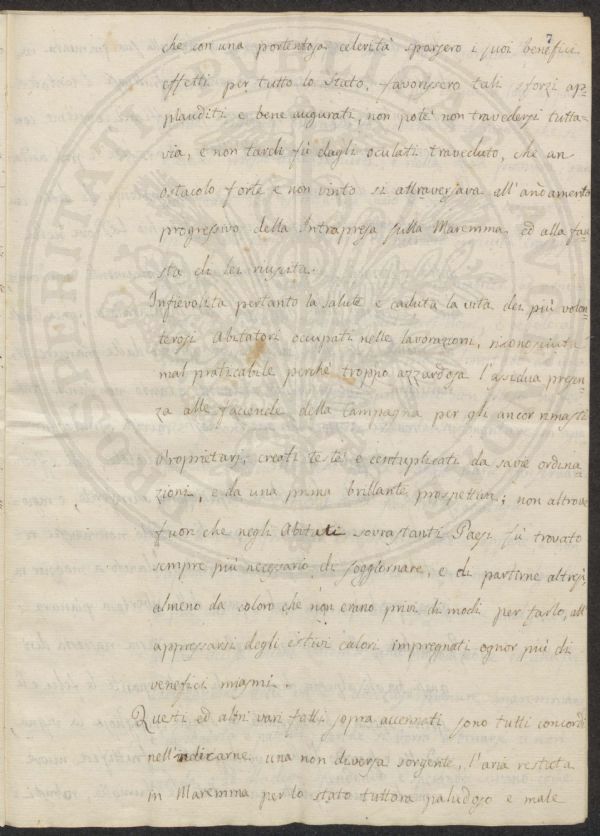 7
che con una portentosa celerità sparsero i suoi benefici
effetti per tutto lo Stato, favorissero tali sforzi ap=
plauditi e bene augurati, non potè non travedersi tutta=
via, e non tardi fù dagli oculati traveduto, che un
ostacolo forte e non vinto si attraversava all'andamento
progressivo della Intrapresa sulla Maremma, ed alla fau=
sta di lei riuscita.
Infievolita pertanto la salute e caduta la vita dei più volon=
terosi Abitatori occupati nelle lavorazioni, riconosciuta
mal praticabile perchè troppo azzardosa l'assidua presen=
za alle faciende della Campagna per gli ancor rimasti
Proprietarj, creati testè e centuplicati da savie ordina=
zioni, e da una prima brillante prospettiva; non altrove
fuori che negli Abitati sovrastanti Paesi fù trovato
sempre più necessario di soggiornare, e di partirne altresì
almeno da coloro che non erano privi di modi per farlo, all'
appressarsi degli estivi calori impregnati ognor più di
venefici miasmi.
Questi ed altri vari fatti sopra accennati sono tutti concordi
nell'indicarne una non diversa sorgente, l'aria restata
in Maremma per lo stato tuttora paludoso e male